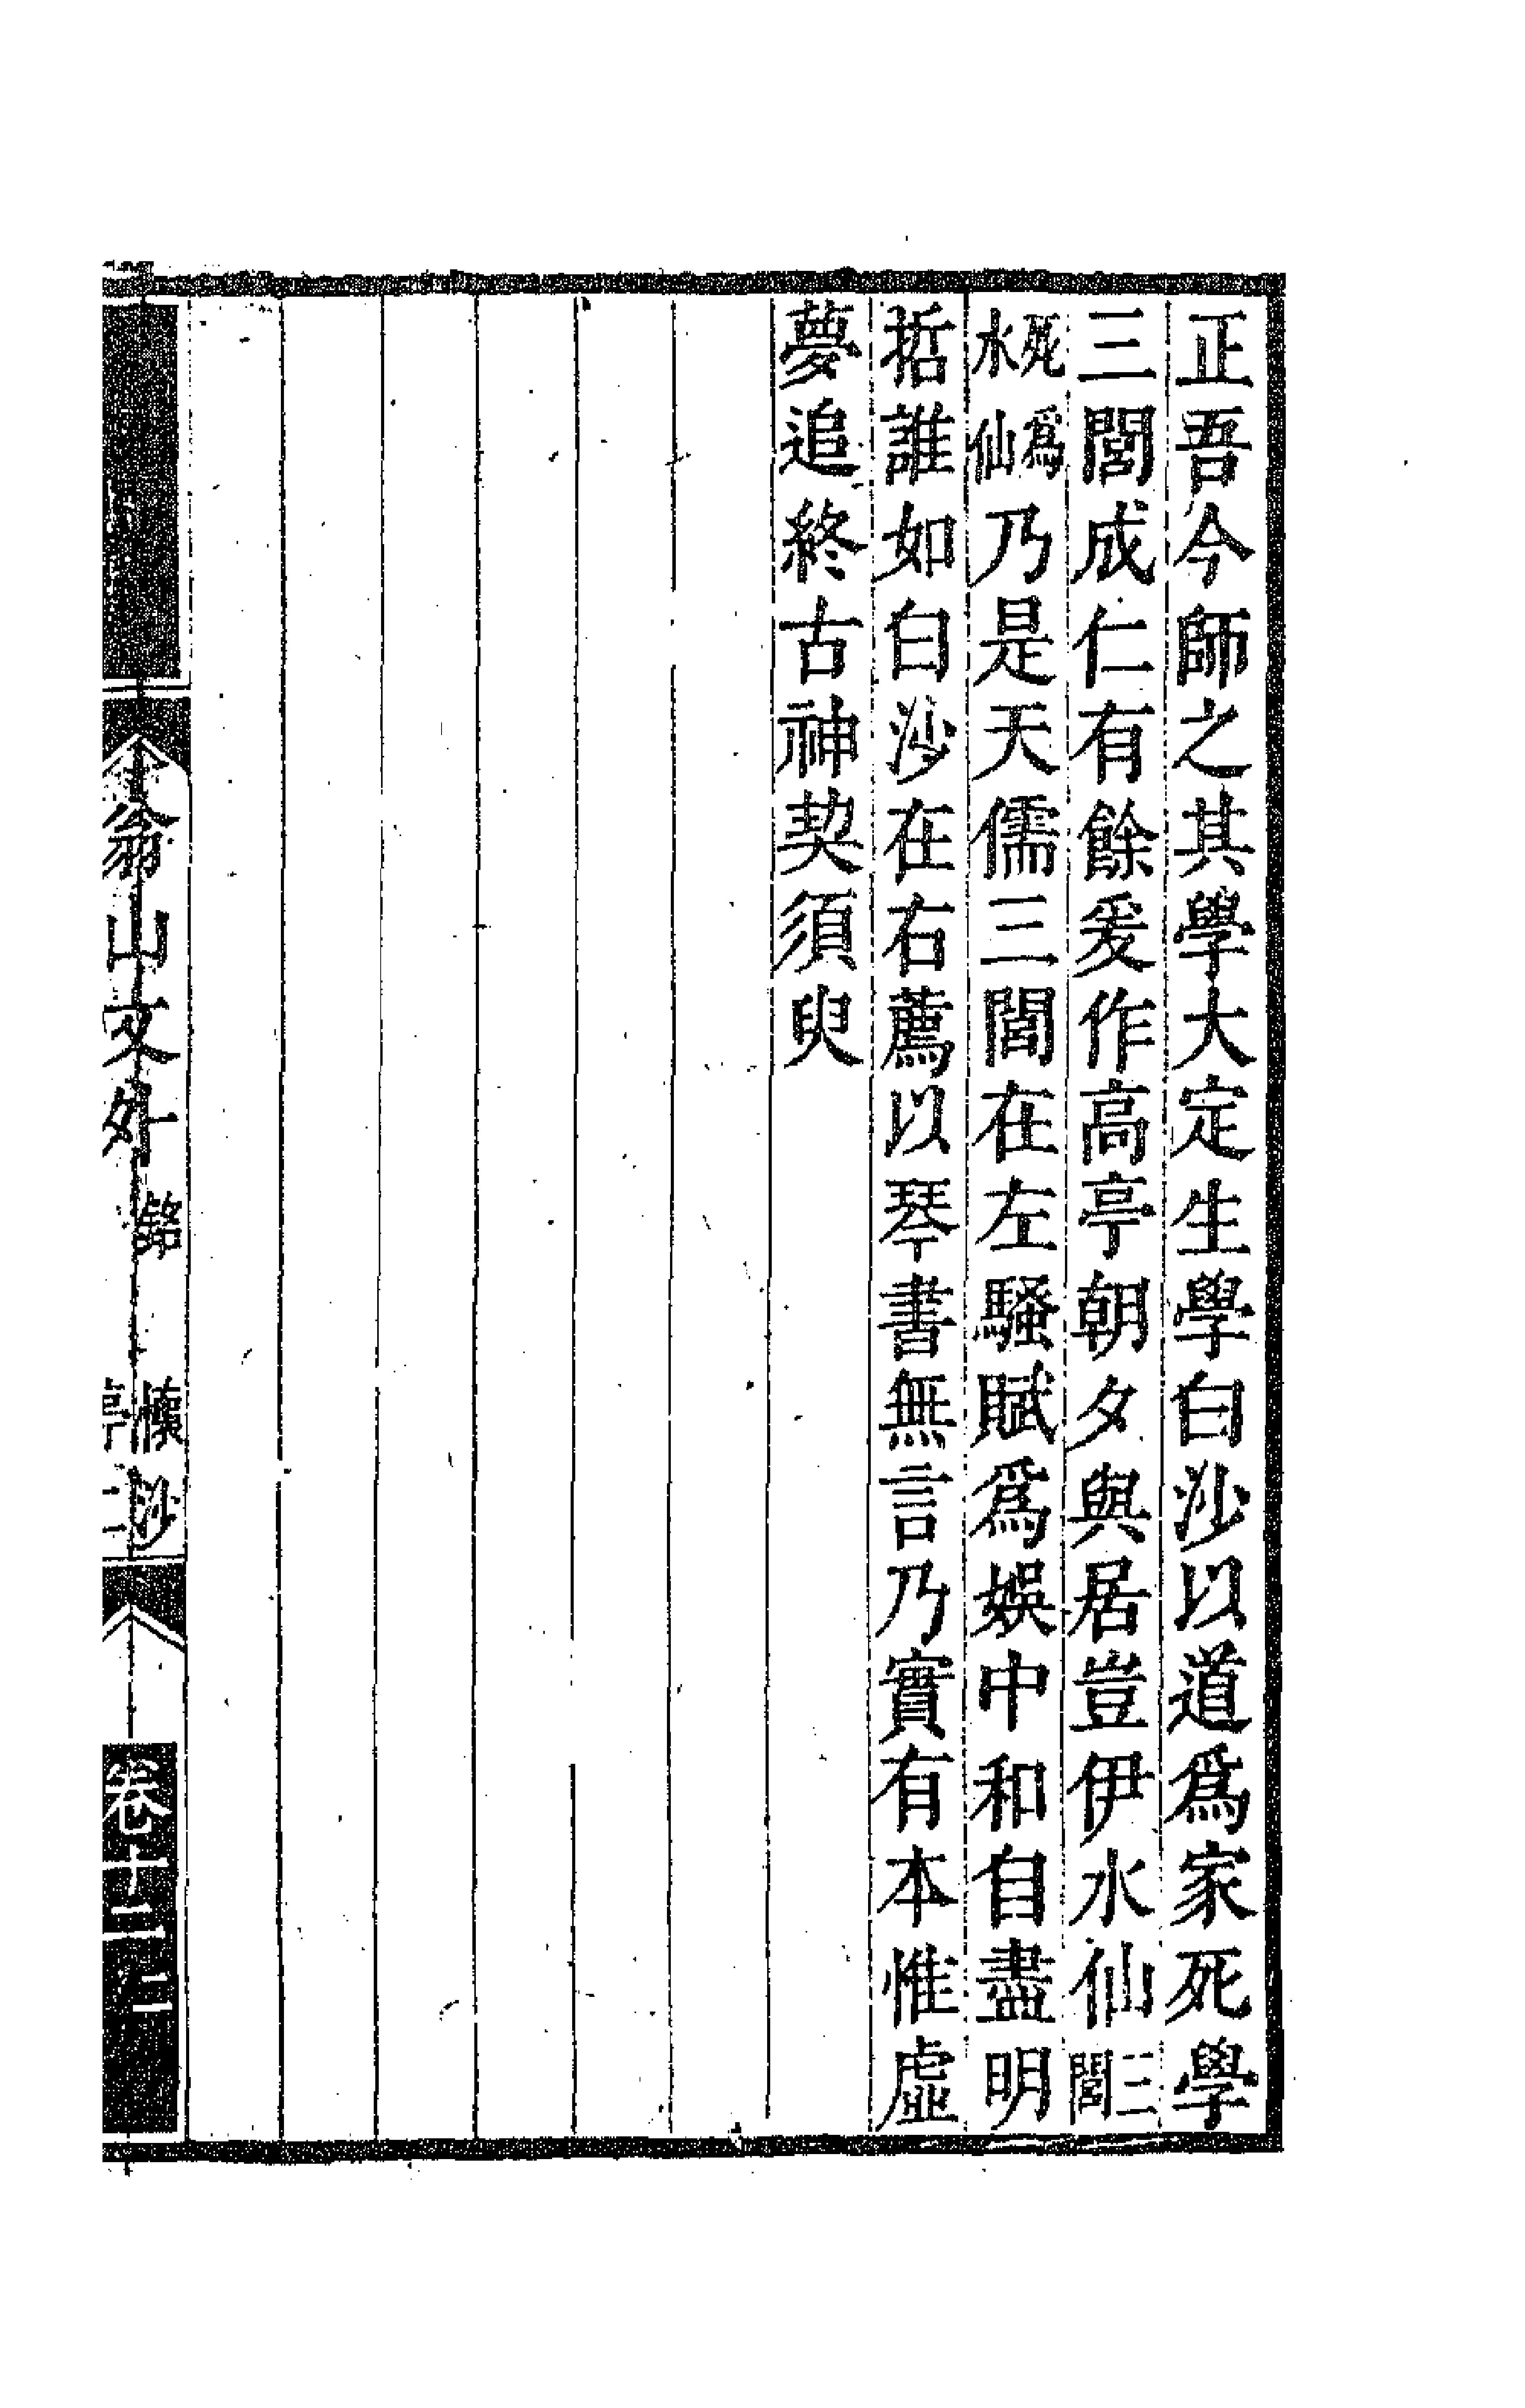 正吾今師之其學大定生學白沙以道爲家死學
三閭成仁有餘爰作高亭朝夕與居豈伊水仙三閭
死爲水仙乃是天儒三閭在左騷賦爲娛中和自盡明
哲誰如白沙在右薦以琴書無言乃實有本惟虛
夢追終古神契須臾
翁山文外 銘 懷沙亭二
卷十二